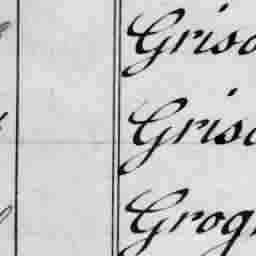 Griso
Griso
Grogn